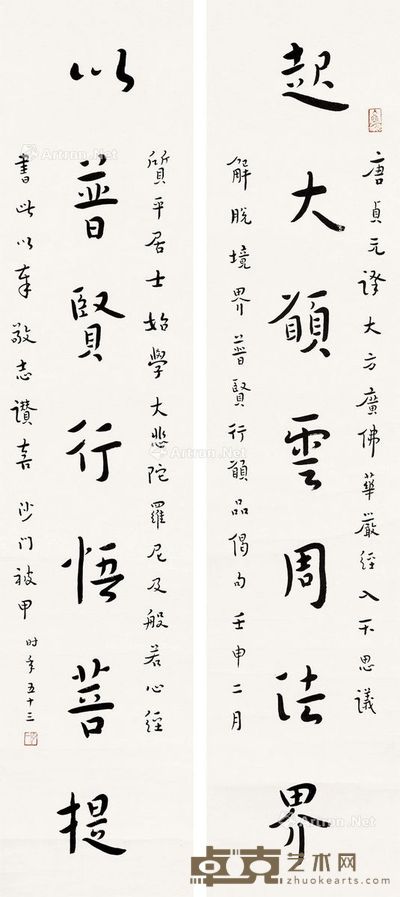 起大願雲周法界
唐貞元譯大方廣佛華嚴經入不思議
解脫境界普賢行願品偈句壬申二月
以普賢行悟菩提
質平居士始學大悲陀羅尼及般若心經
書此以奉敬志讚喜沙门被甲时年五十三
Artron.Net
Artron.Net
Artron.Net
Artron.Net
卓克艺术网
zhuokearts.com